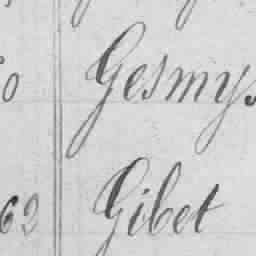 0 Gesmys
62 Gibet